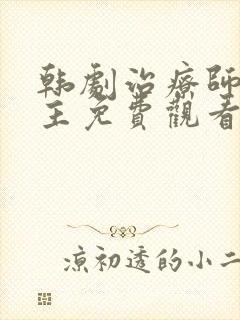 韩劇治療師
主免費觀看
凉初透的小二